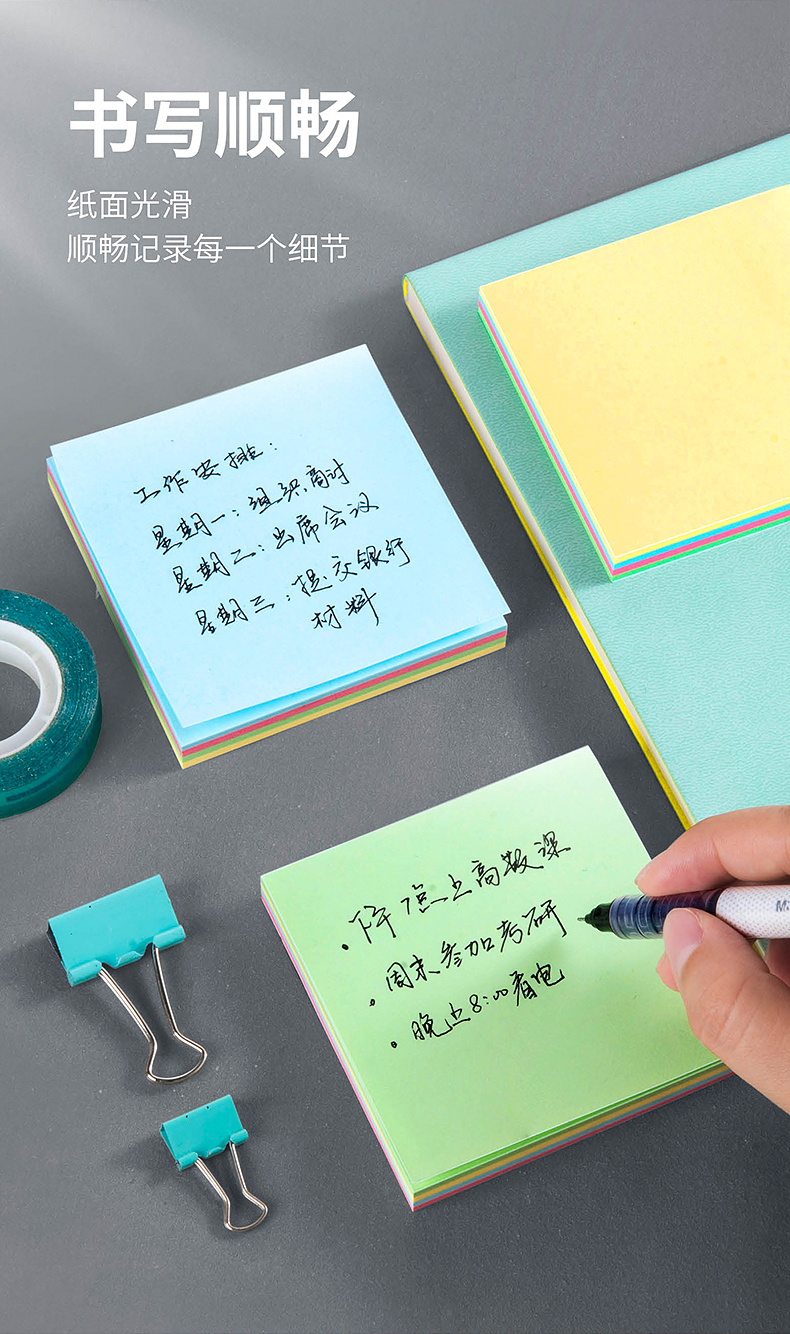 书写顺畅
纸面光滑
顺畅记录每一个细节
工作安排：
星期一：组织商讨
星期二：出席会议
星期三：提交银行
材料
上高数课
· 周末参加考研
· 晚上8:00看电
M